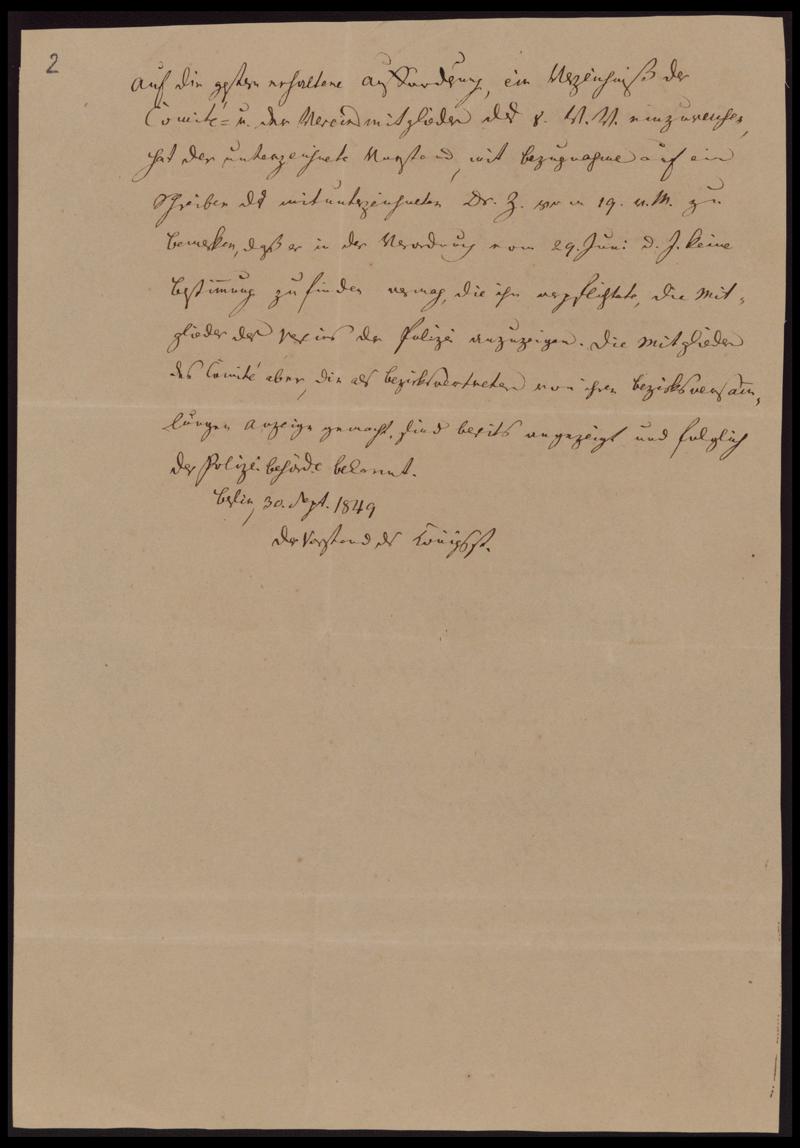 2
Auf die gestern erhaltene Aufforderung, ein Verzeichniß der
Comité- u. der Vereinsmitglieder des 8. V. V. einzureichen,
hat der unterzeichnete Vorstand, mit Bezugnahme auf ein
Schreiben des mitunterzeichneten Dr. Z. vom 19. v. M. zu
bemerken, daß er in der Verordnung vom 29. Juni d. J. keine
Bestimmung zu finden vermag, die ihn verpflichtete, die Mit-
glieder des Vereins der Polizei anzuzeigen. Die Mitglieder
des Comité aber, die als Bezirksvertreter von ihren Bezirksversam̄-
lungen Anzeige gemacht, sind bereits angezeigt und folglich
der Polizeibehörde bekannt.
Berlin, 30. Sept. 1849
Der Vorstand des Königsst.